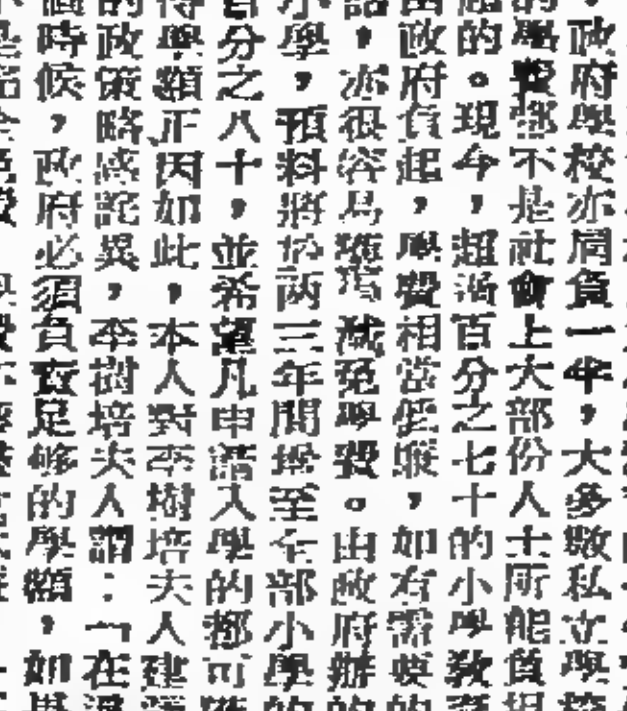 政府學校亦肩負一半，大多數私立學校
的學費都不是社會上大部份人士所能負担
的。現今，超過百分之七十的小學教育
由政府負起，學費相當低廉，如有需要的
話，亦很容易獲得減免學費。由政府辦的
小學，預料將於兩三年間擴至全部小學的
百分之八十，並希望凡申請入學的都可獲
得學額正因如此，本人對李樹培夫人建議
的政策略感詫異，李樹培夫人謂：「在過
個時候，政府必須負責足够的學額，如果